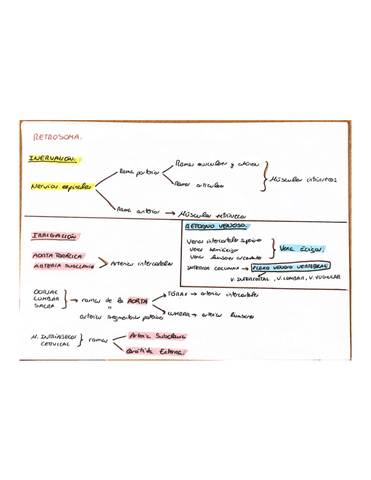 RETROSOMA.
INERVACIÓN.
Nervios espinales
Rama posterior
Ramas musculares y cutáneas
Ramas articulares
Músculos intrínsecos
Rama anterior → Músculos extrínsecos
IRRIGACIÓN
AORTA TORÁCICA
ARTERIA SUBCLAVIA
Arterias intercostales
RETORNO VENOSO.
Venas intercostales
Vena hemiácigos
Vena lumbar ascendente
Vena Ácigos.
INTERIOR COLUMNA → PLEXO VENOSO VERTEBRAL
V. LUMBAR, V. YUGULAR
DORSAL
LUMBAR
SACRA
ramas de la AORTA
arterias segmentarias
TÓRAX → arterias intercostales
LUMBAR → arterias lumbares
M. INTRÍNSECOS
CERVICAL
ramas
Arteria Subclavia
Carótida Externa.